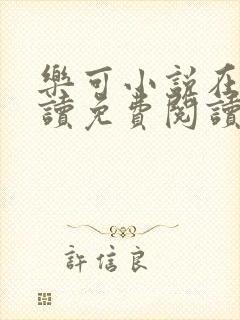 樂可小說在
讀免費閱讀
許信良